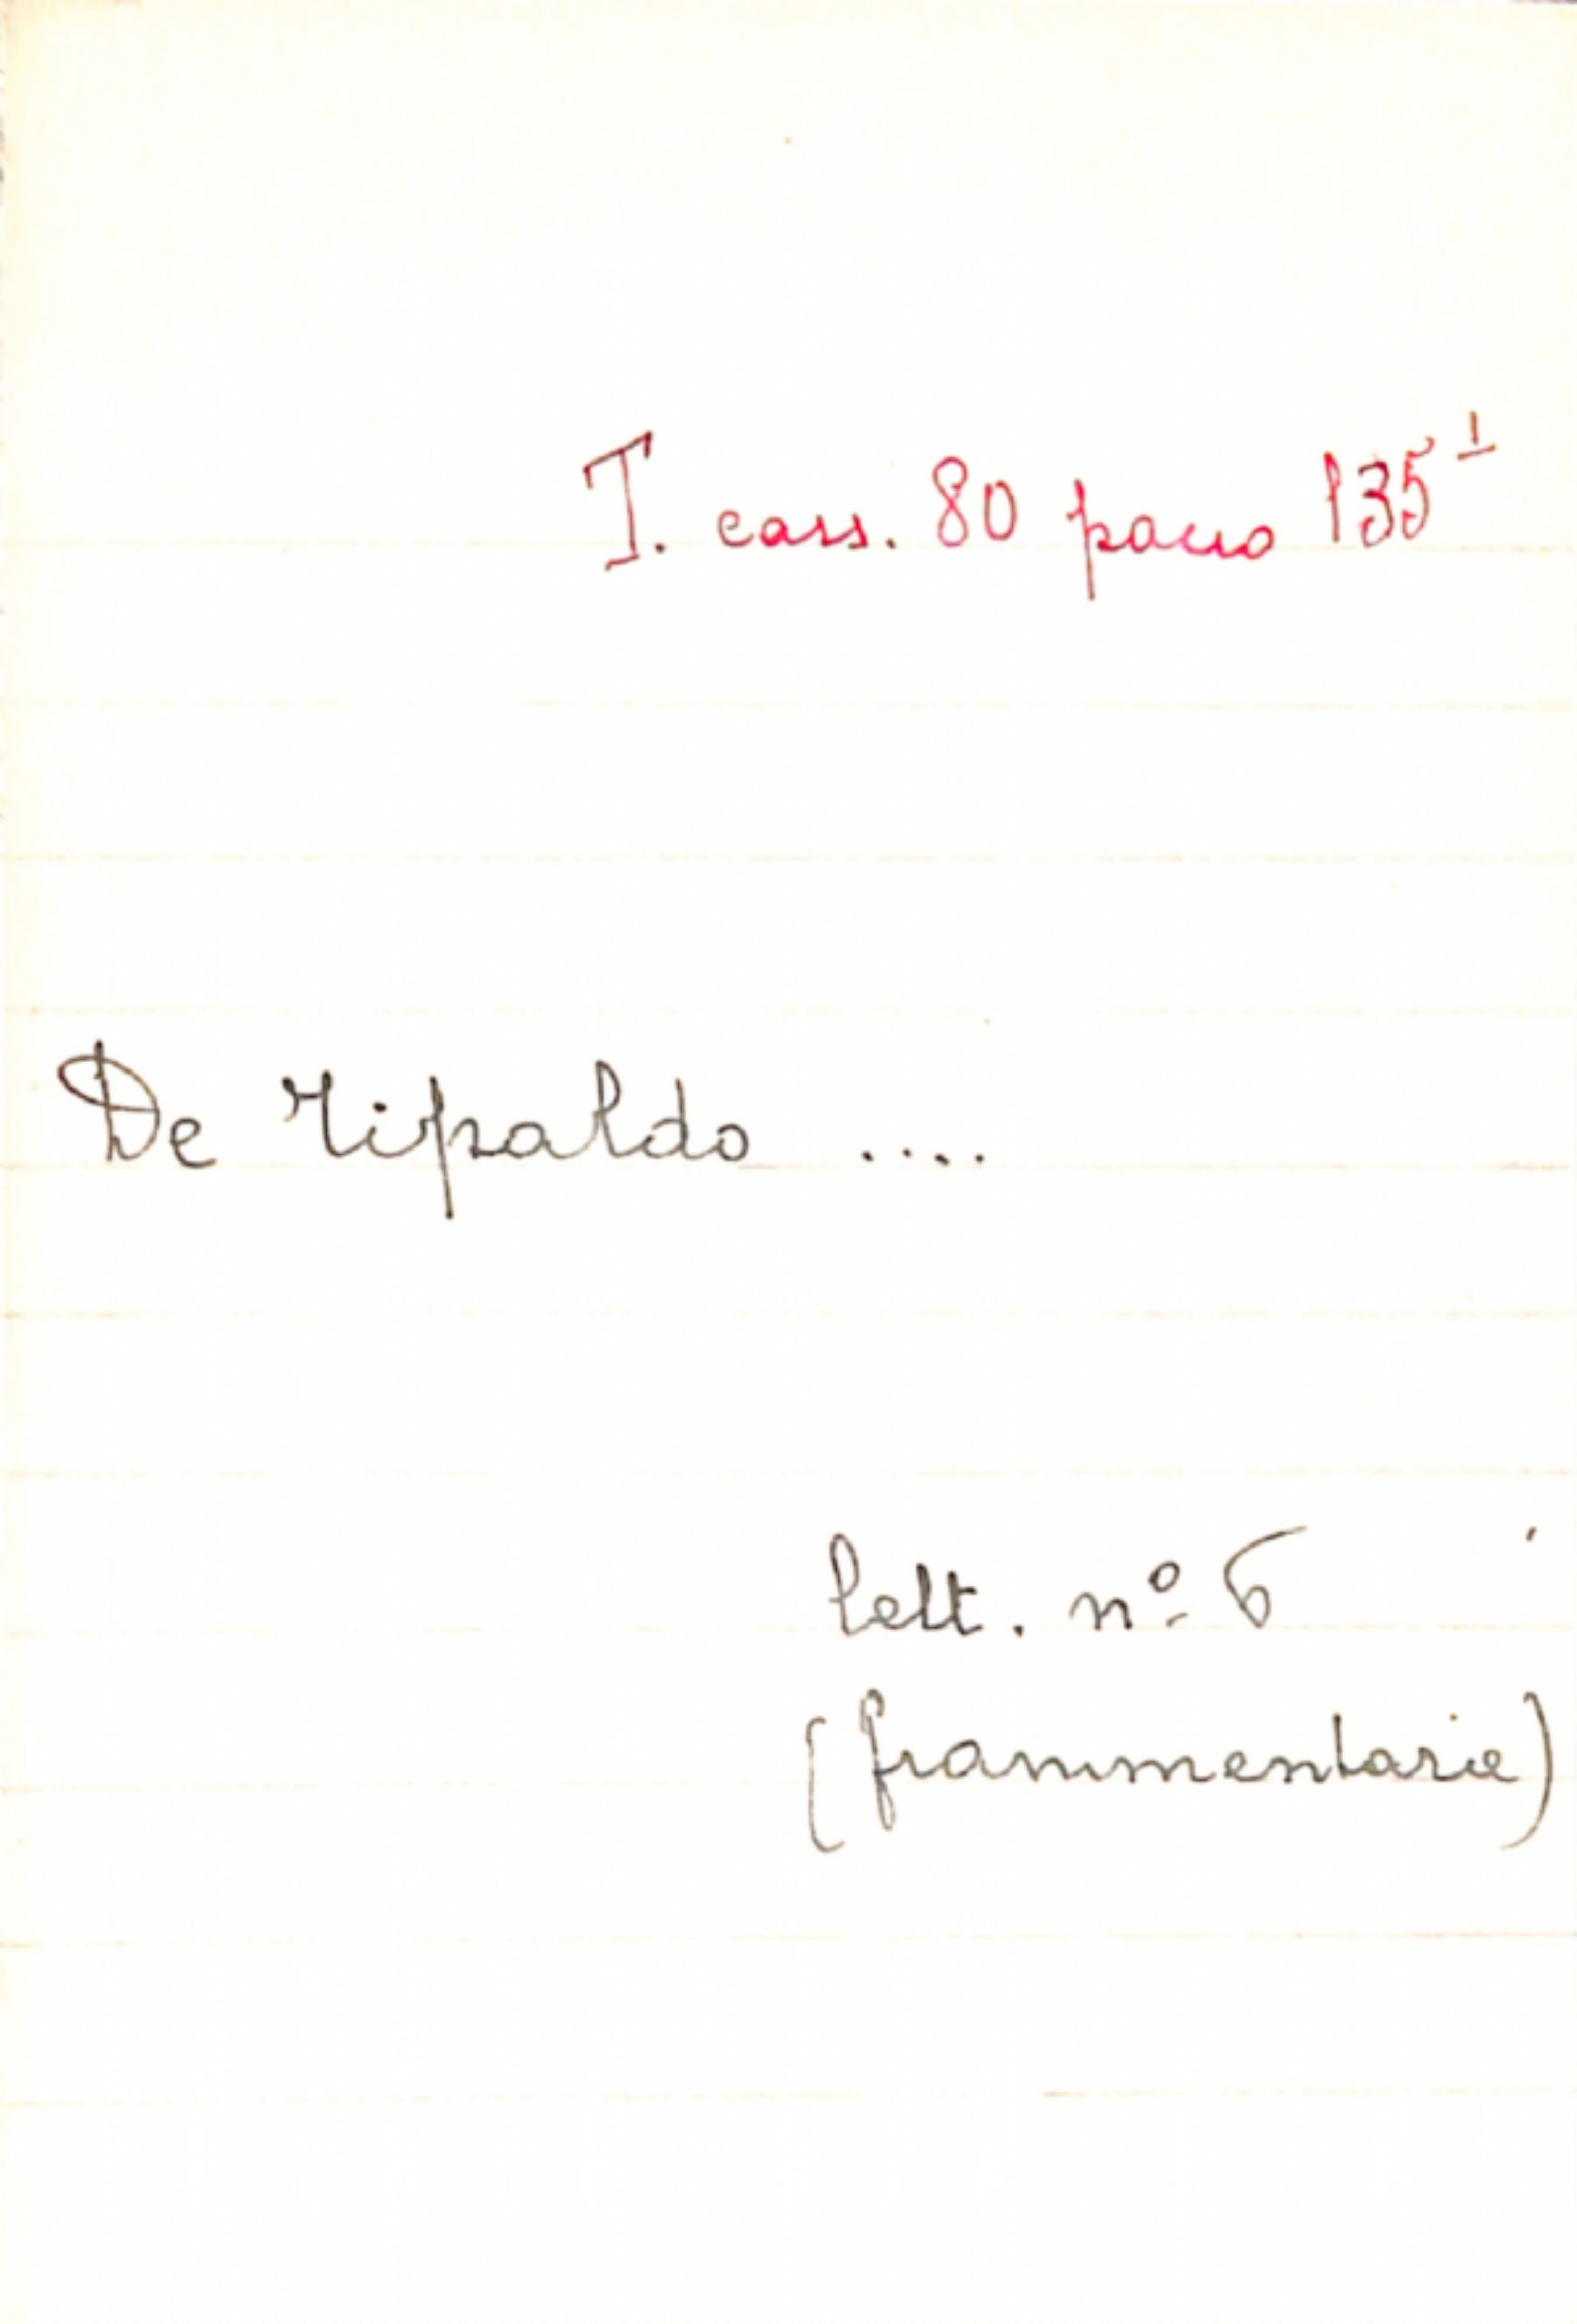 T. cass. 80 pacco 135¹
De Ripaldo ....
lett. nº 6
(frammentarie)